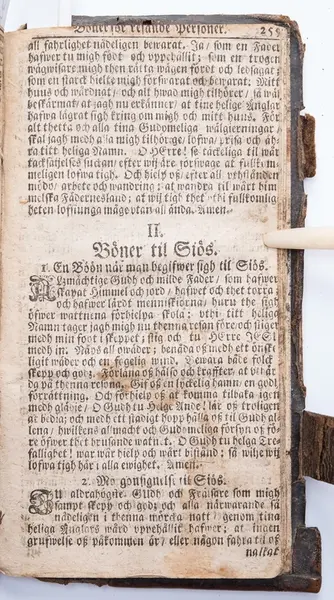 Böner för resande Personer. 255
all fahrlighet nådeligen bewarat. Ja/ som en Fader
hafwer tu migh födt och uppehållit; som en trogen
wägwisare migh then rätta wägen fördt och ledsagat;
som en starck hielte migh förswarat och bewarat: Mitt
huus och wårdnat/ och alt hwad migh tilhörer/ så wäl
beskärmat/ at jagh nu erkänner/ at tine helige Änglar
hafwa lägrat sigh kring om migh och mitt huus. För
alt thetta och alla tina Gudomeliga wälgierningar/
skal jagh medh alla migh tilhörige/ lofwa/ prisa och äh-
ra titt helige Namn. O HErre! så täckeliga til wår
tacksäjelses suckan/ efter wij äre förswage at fullkom-
meligen lofwa tigh. Och hielp oß/ efter all uthständen
mödo/ arbete och wandring: at wandra til wårt him-
melska Fädernesland; at wij tigh thet uthi fullkomlig-
heten lofsiunga måge utan all ända. Amen.
II.
Böner til Siös.
1. En Böön när man begifwer sigh til Siös.
Allzmächtige Gudh och milde Fader/ som hafwer
skapat Himmel och jord/ hafwet och thet torra
och hafwer lärdt menniskiorna/ huru the sigh
öfwer wattnena förhielpa skola: uthi titt heliga
Namn tager jagh migh nu thenna resan före och stiger
medh min foot i skeppet; stig och tu HErre JESu
medh in. Näps all owäder; benåda oß medh ett önske-
ligit wäder och en fogelig wind. Bewara både folck/
skepp och godz. Förläna oß hälso och kraffter/ at uthär-
da på thenna resona. Gif oß en lyckelig hamn/ en godh
förrättning. Och förhielp oß at komma tilbaka igen
medh glädie; O Gudh tu Helge Ande! lär oß troligen
at bidia; och medh ett stadigt hopp hålla oß til Gudh al-
lena/ hwilkens almacht och Gudhomeliga försyn oß fö-
re öfwer thet brusande watnet. O Gudh tu helga Tre-
fallighet! war wår hielp och wårt bistånd: så wilje wij
lofwa tigh här i alla ewighet. Amen.
2. Morgonsignelse til Siös.
Tu aldrahögste Gudh och Frälsare som migh
sampt skepp och godz och alla närwarande så
nådeligen i thenna mörcka natt/ genom tina
heliga Änglars wård uppehållit hafwer; at ingen
grufwelse oß påkommen är/ eller någon fahra til oß
nalkat